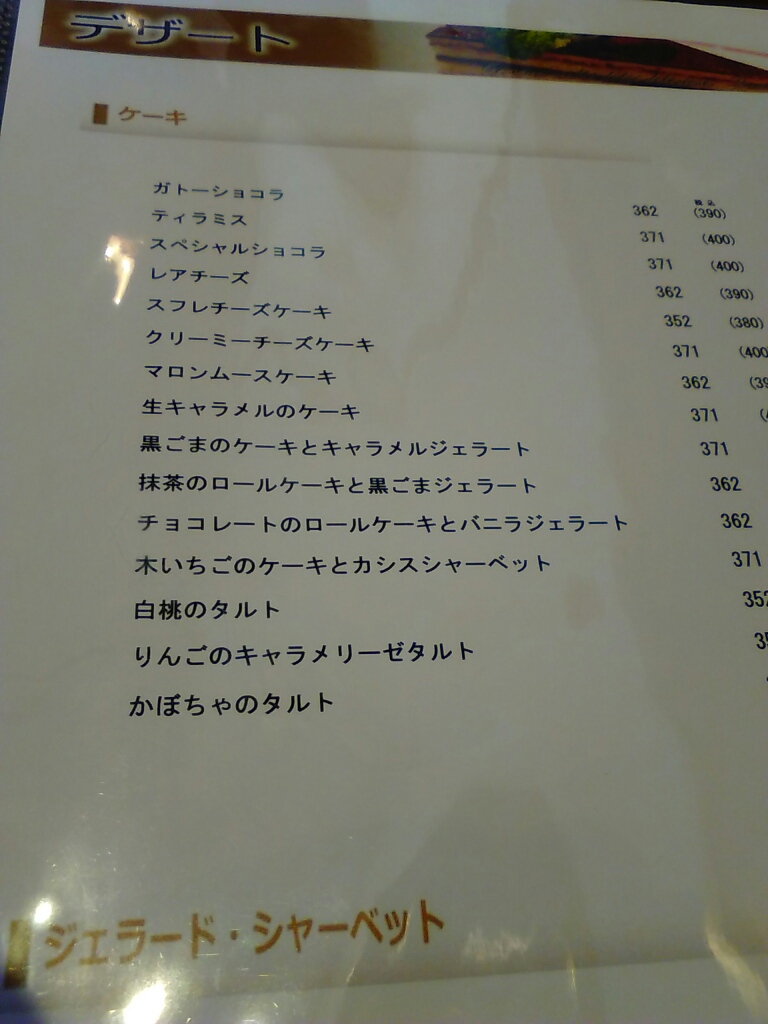 デザート
ケーキ
税込
ガトーショコラ 362 (390)
ティラミス 371 (400)
スペシャルショコラ 371 (400)
レアチーズ 362 (390)
スフレチーズケーキ 352 (380)
クリーミーチーズケーキ 371 (400
マロンムースケーキ 362 (39
生キャラメルのケーキ 371
黒ごまのケーキとキャラメルジェラート 371
抹茶のロールケーキと黒ごまジェラート 362
チョコレートのロールケーキとバニラジェラート 362
木いちごのケーキとカシスシャーベット 371
白桃のタルト 352
りんごのキャラメリーゼタルト 35
かぼちゃのタルト
ジェラード・シャーベット